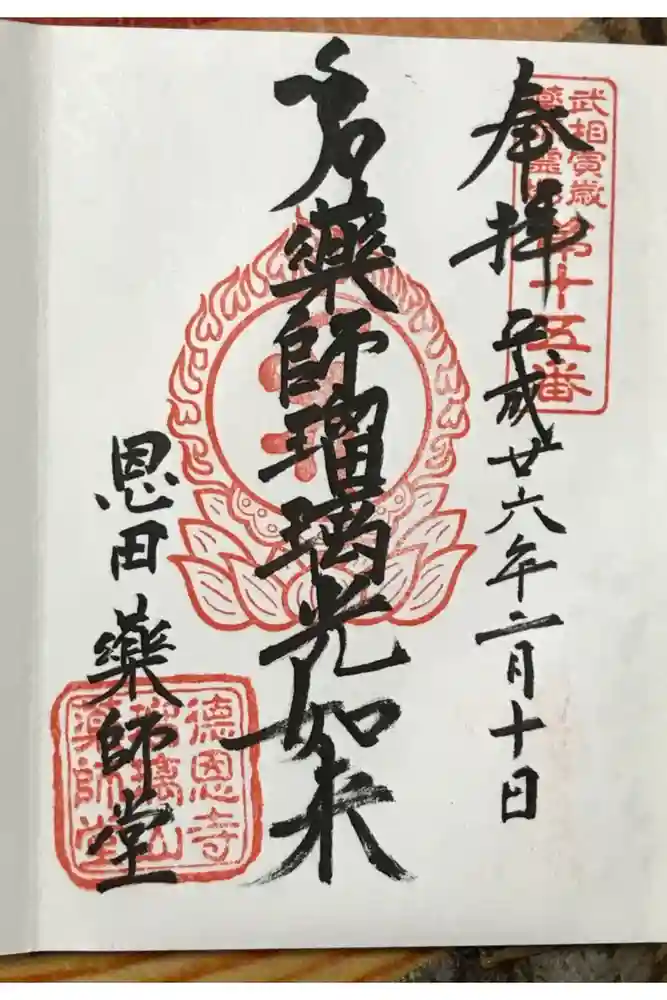 武相寅歳
薬師霊場
第十五番
奉拝 平成廿六年二月十日
薬師瑠璃光如来
恩田薬師堂
徳恩寺
瑠璃山
薬師堂